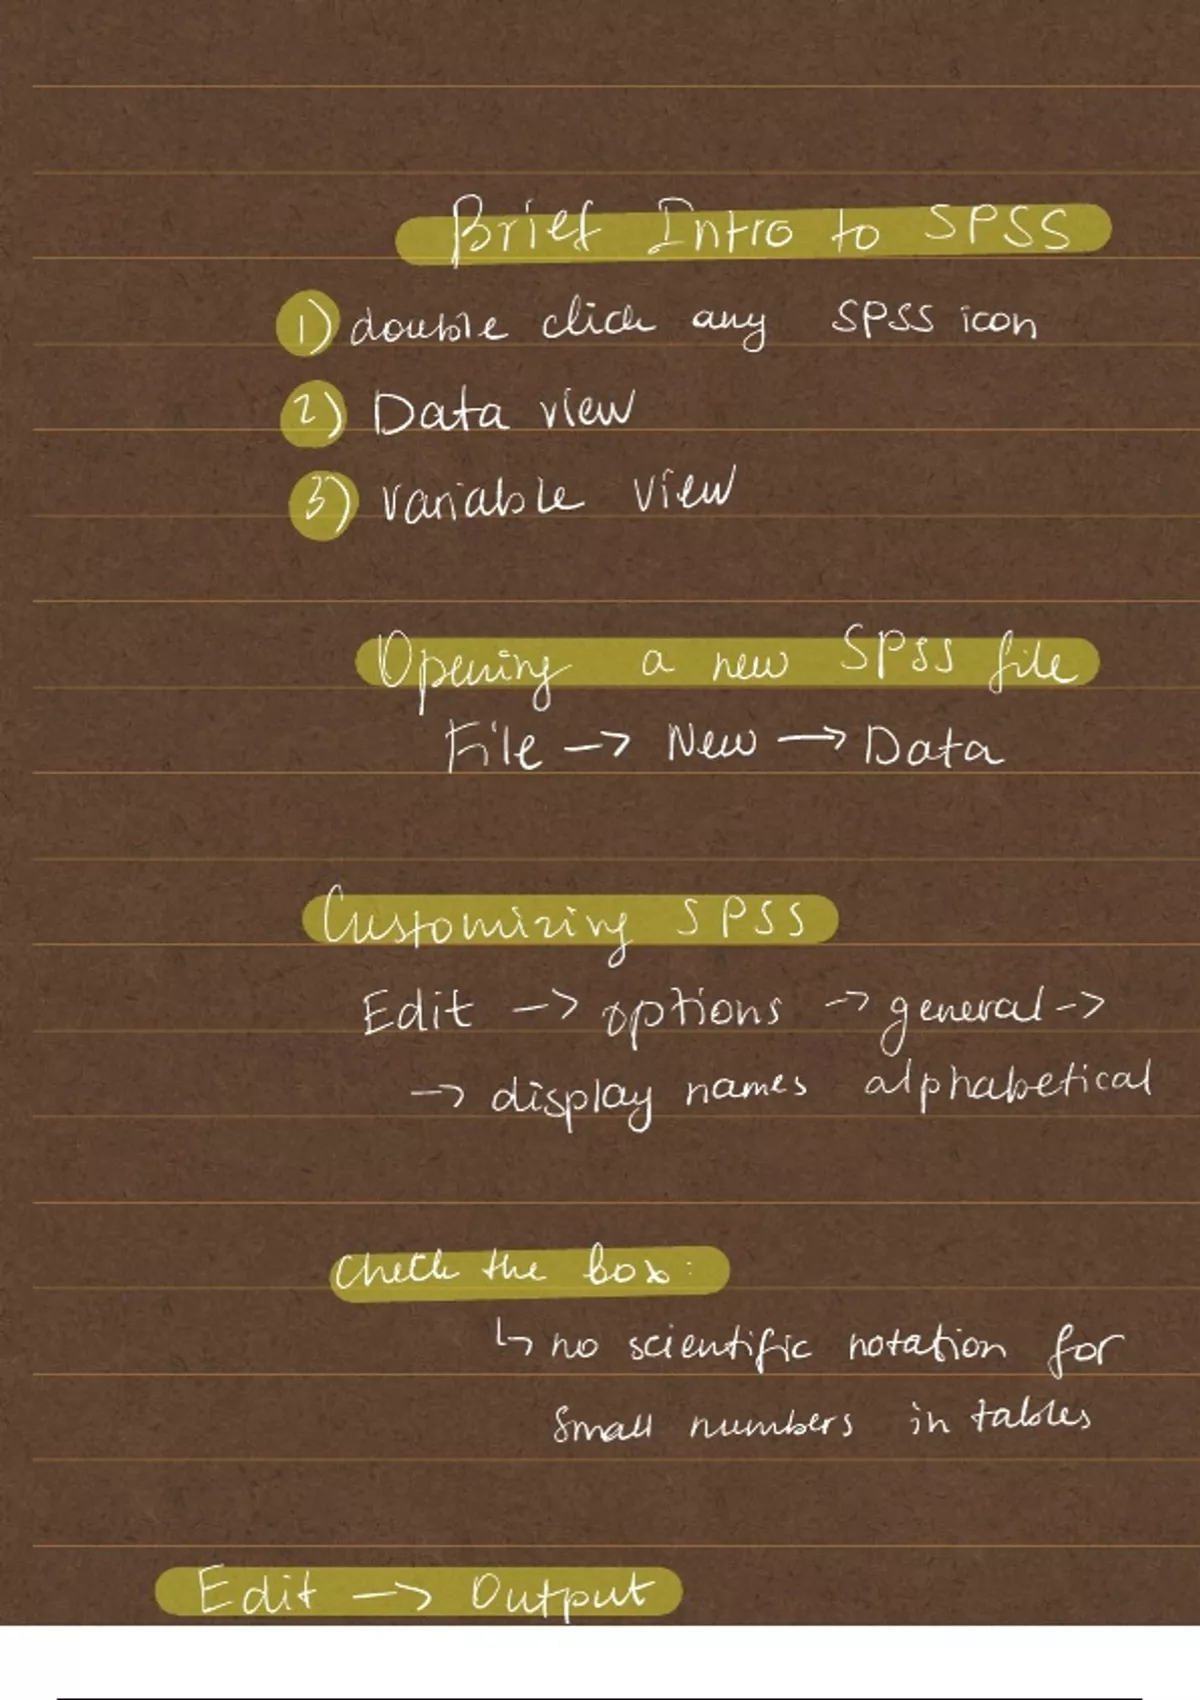 Brief Intro to SPSS
1) double click any SPSS icon
2) Data view
3) variable view
Opening a new SPSS file
File -> New -> Data
Customizing SPSS
Edit -> options -> general ->
-> display names alphabetical
Check the box:
↳ no scientific notation for
small numbers in tables
Edit -> Output